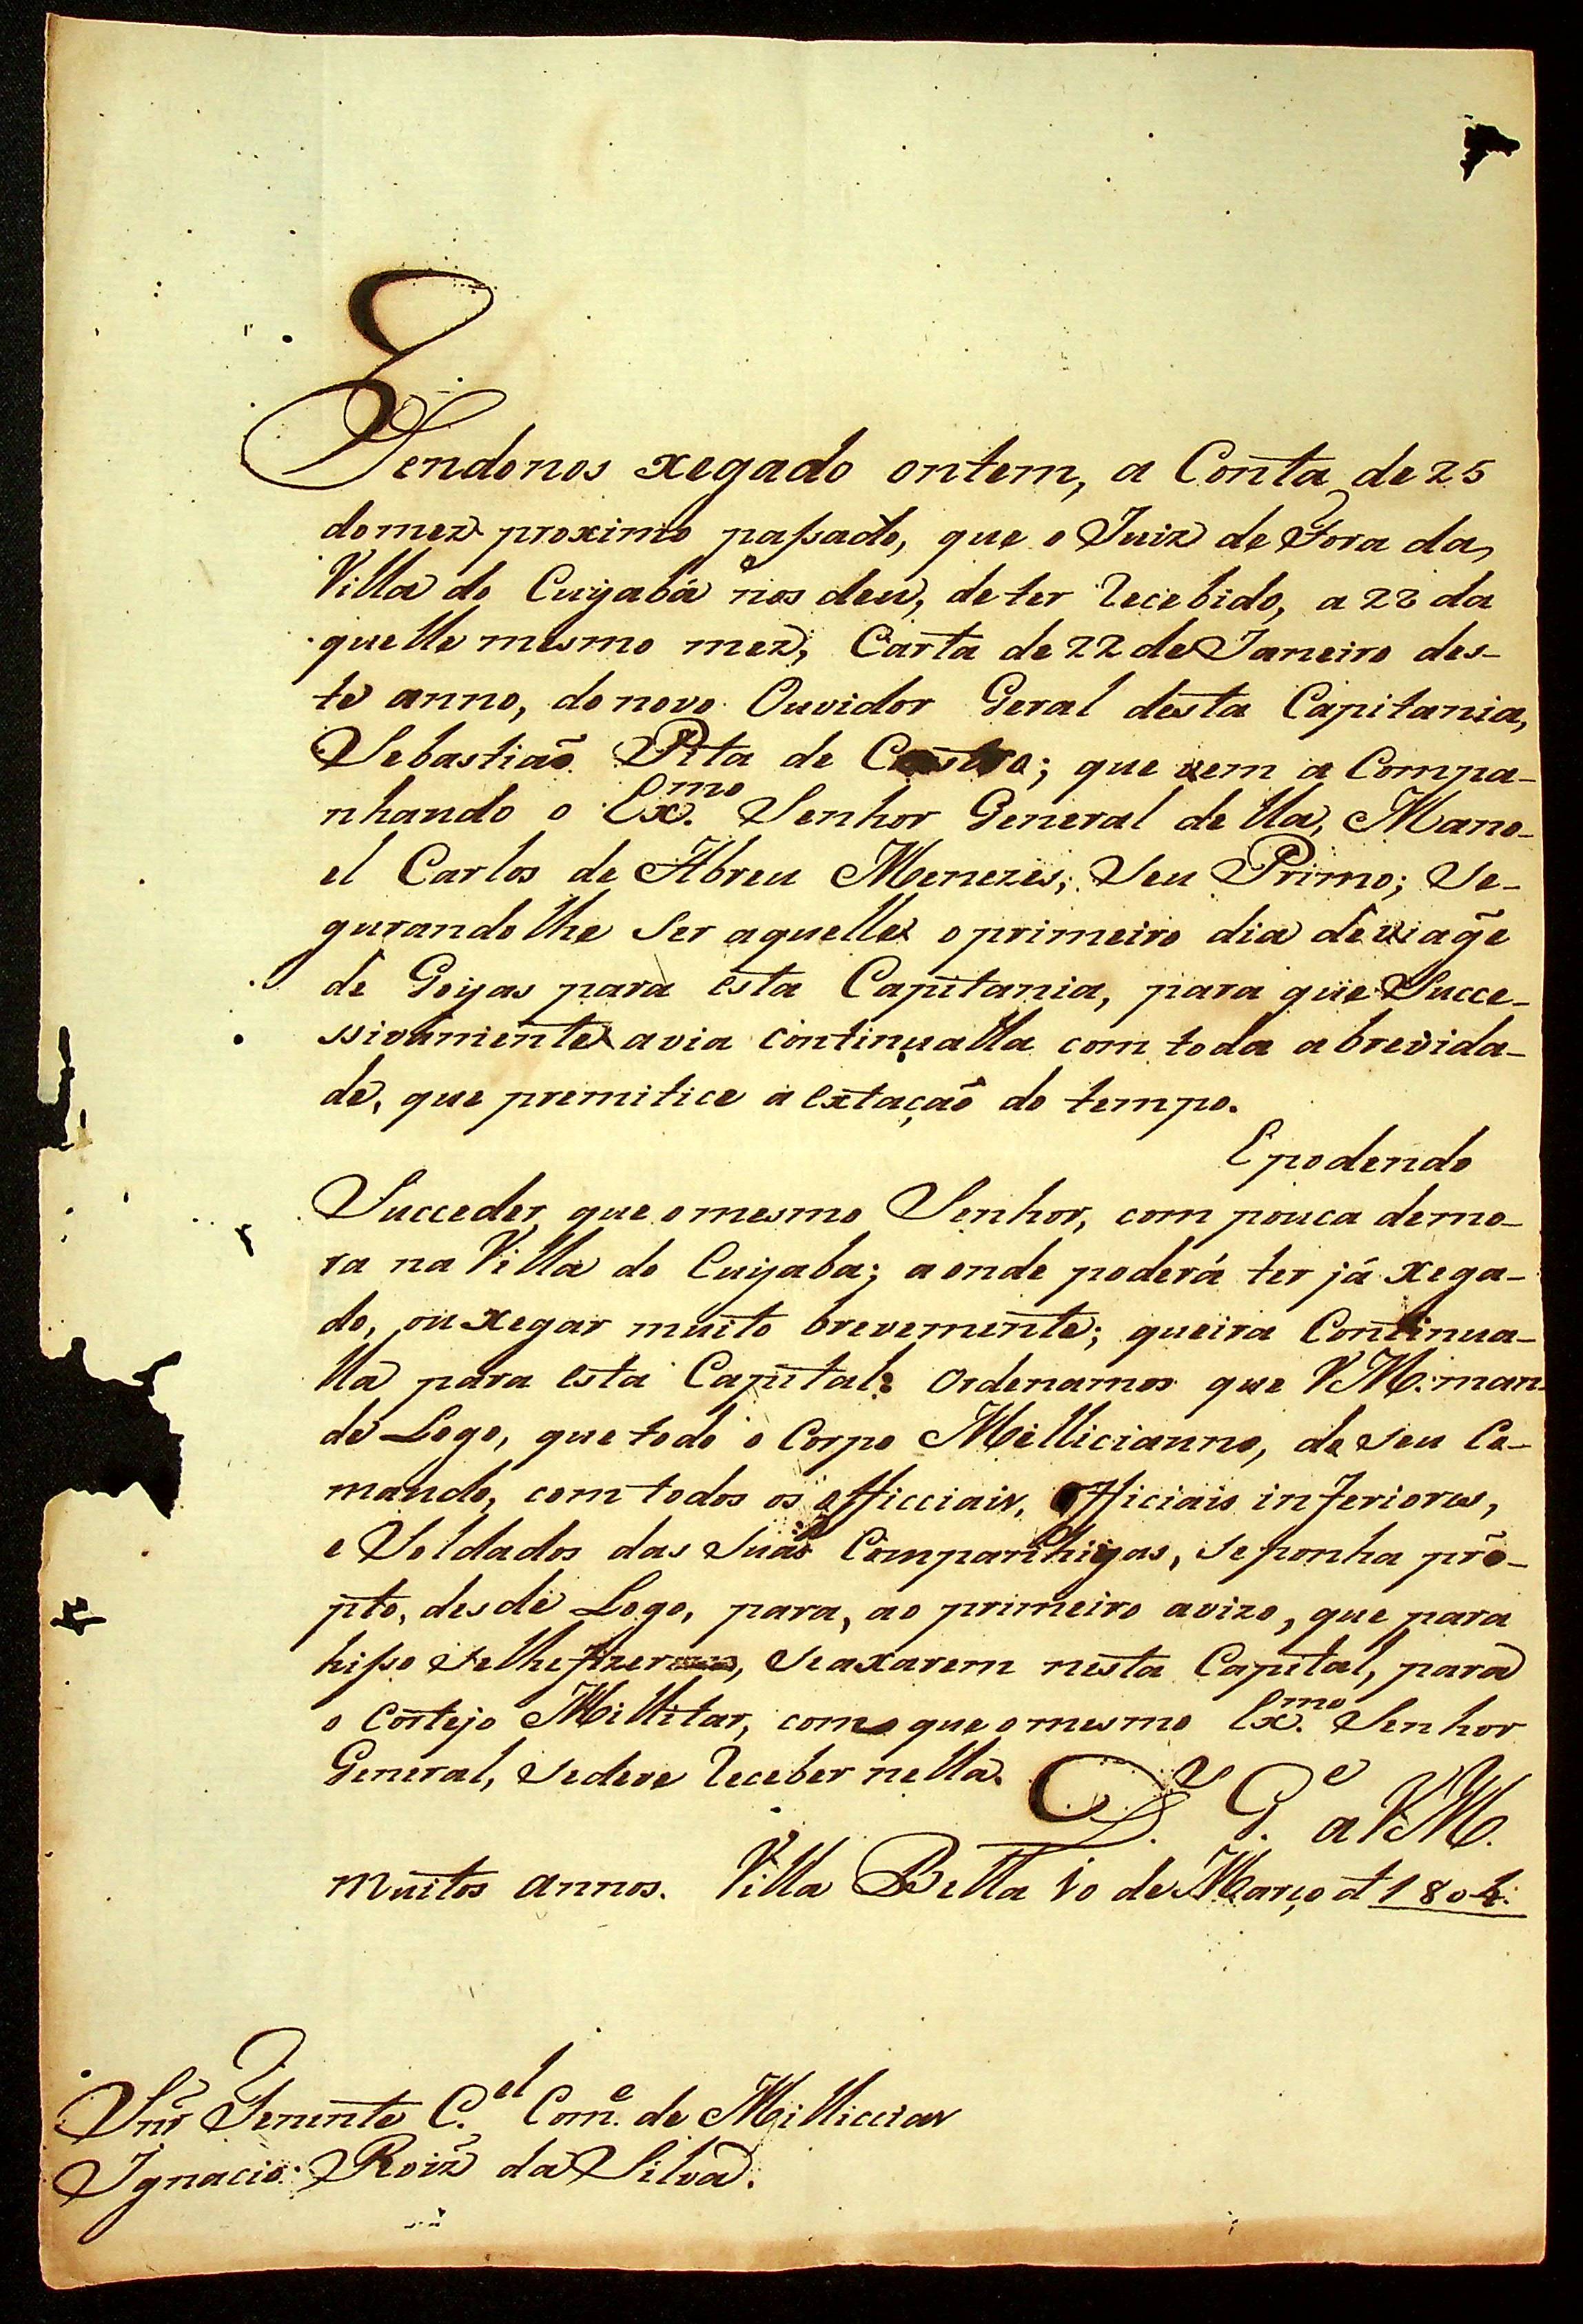 Tendonos xegado ontem, a Conta de 25
do mez proximo paſsado, que o Juiz de Fora da
Villa do Cuyabá nos deu, de ter recebido, a 22 da
quelle mesmo mez, Carta de 22 de Janeiro des-
te anno, do novo Ouvidor Geral desta Capitania,
Sebastiaõ Pita de Castro; que vem a Compa-
nhando o Ex.mo Senhor General della, Mano-
el Carlos de Abreu Menezes; Seu Primo; Se-
gurandolhe Ser aquelle o primeiro dia de viagẽ
de Goyas para esta Capitania, para que Succe-
ssivamente a via continualla com toda a brevida-
de, que premitice a extaçaõ do tempo.
E podendo
Succeder que o mesmo Senhor, com pouca demo-
ra na Villa do Cuyaba; aonde poderá ter já xega-
do, ou xegar muito brevemente; queira Continua-
lla para esta Capital: Ordenamos que VM. man-
de Logo, que todo o Corpo Millicianno, de seu Co-
mando, com todos os officciais, officiais inferiores,
e Soldados das suas Companhiyas, se ponha prõ-
pto, desde Logo, para, ao primeiro avizo, que para
hiſso selhe fizer, se axarem nesta Capital, para
o Cortejo Millitar, com que o mesmo Ex.mo Senhor
General, se deve receber nella. D.s G.e a VM.
muitos annos. Villa Bella 10 de Março d 1804.
Snr̃ Tenente C.el Com.e de Milliccias
Ignacio Roiz̃ da Silva.